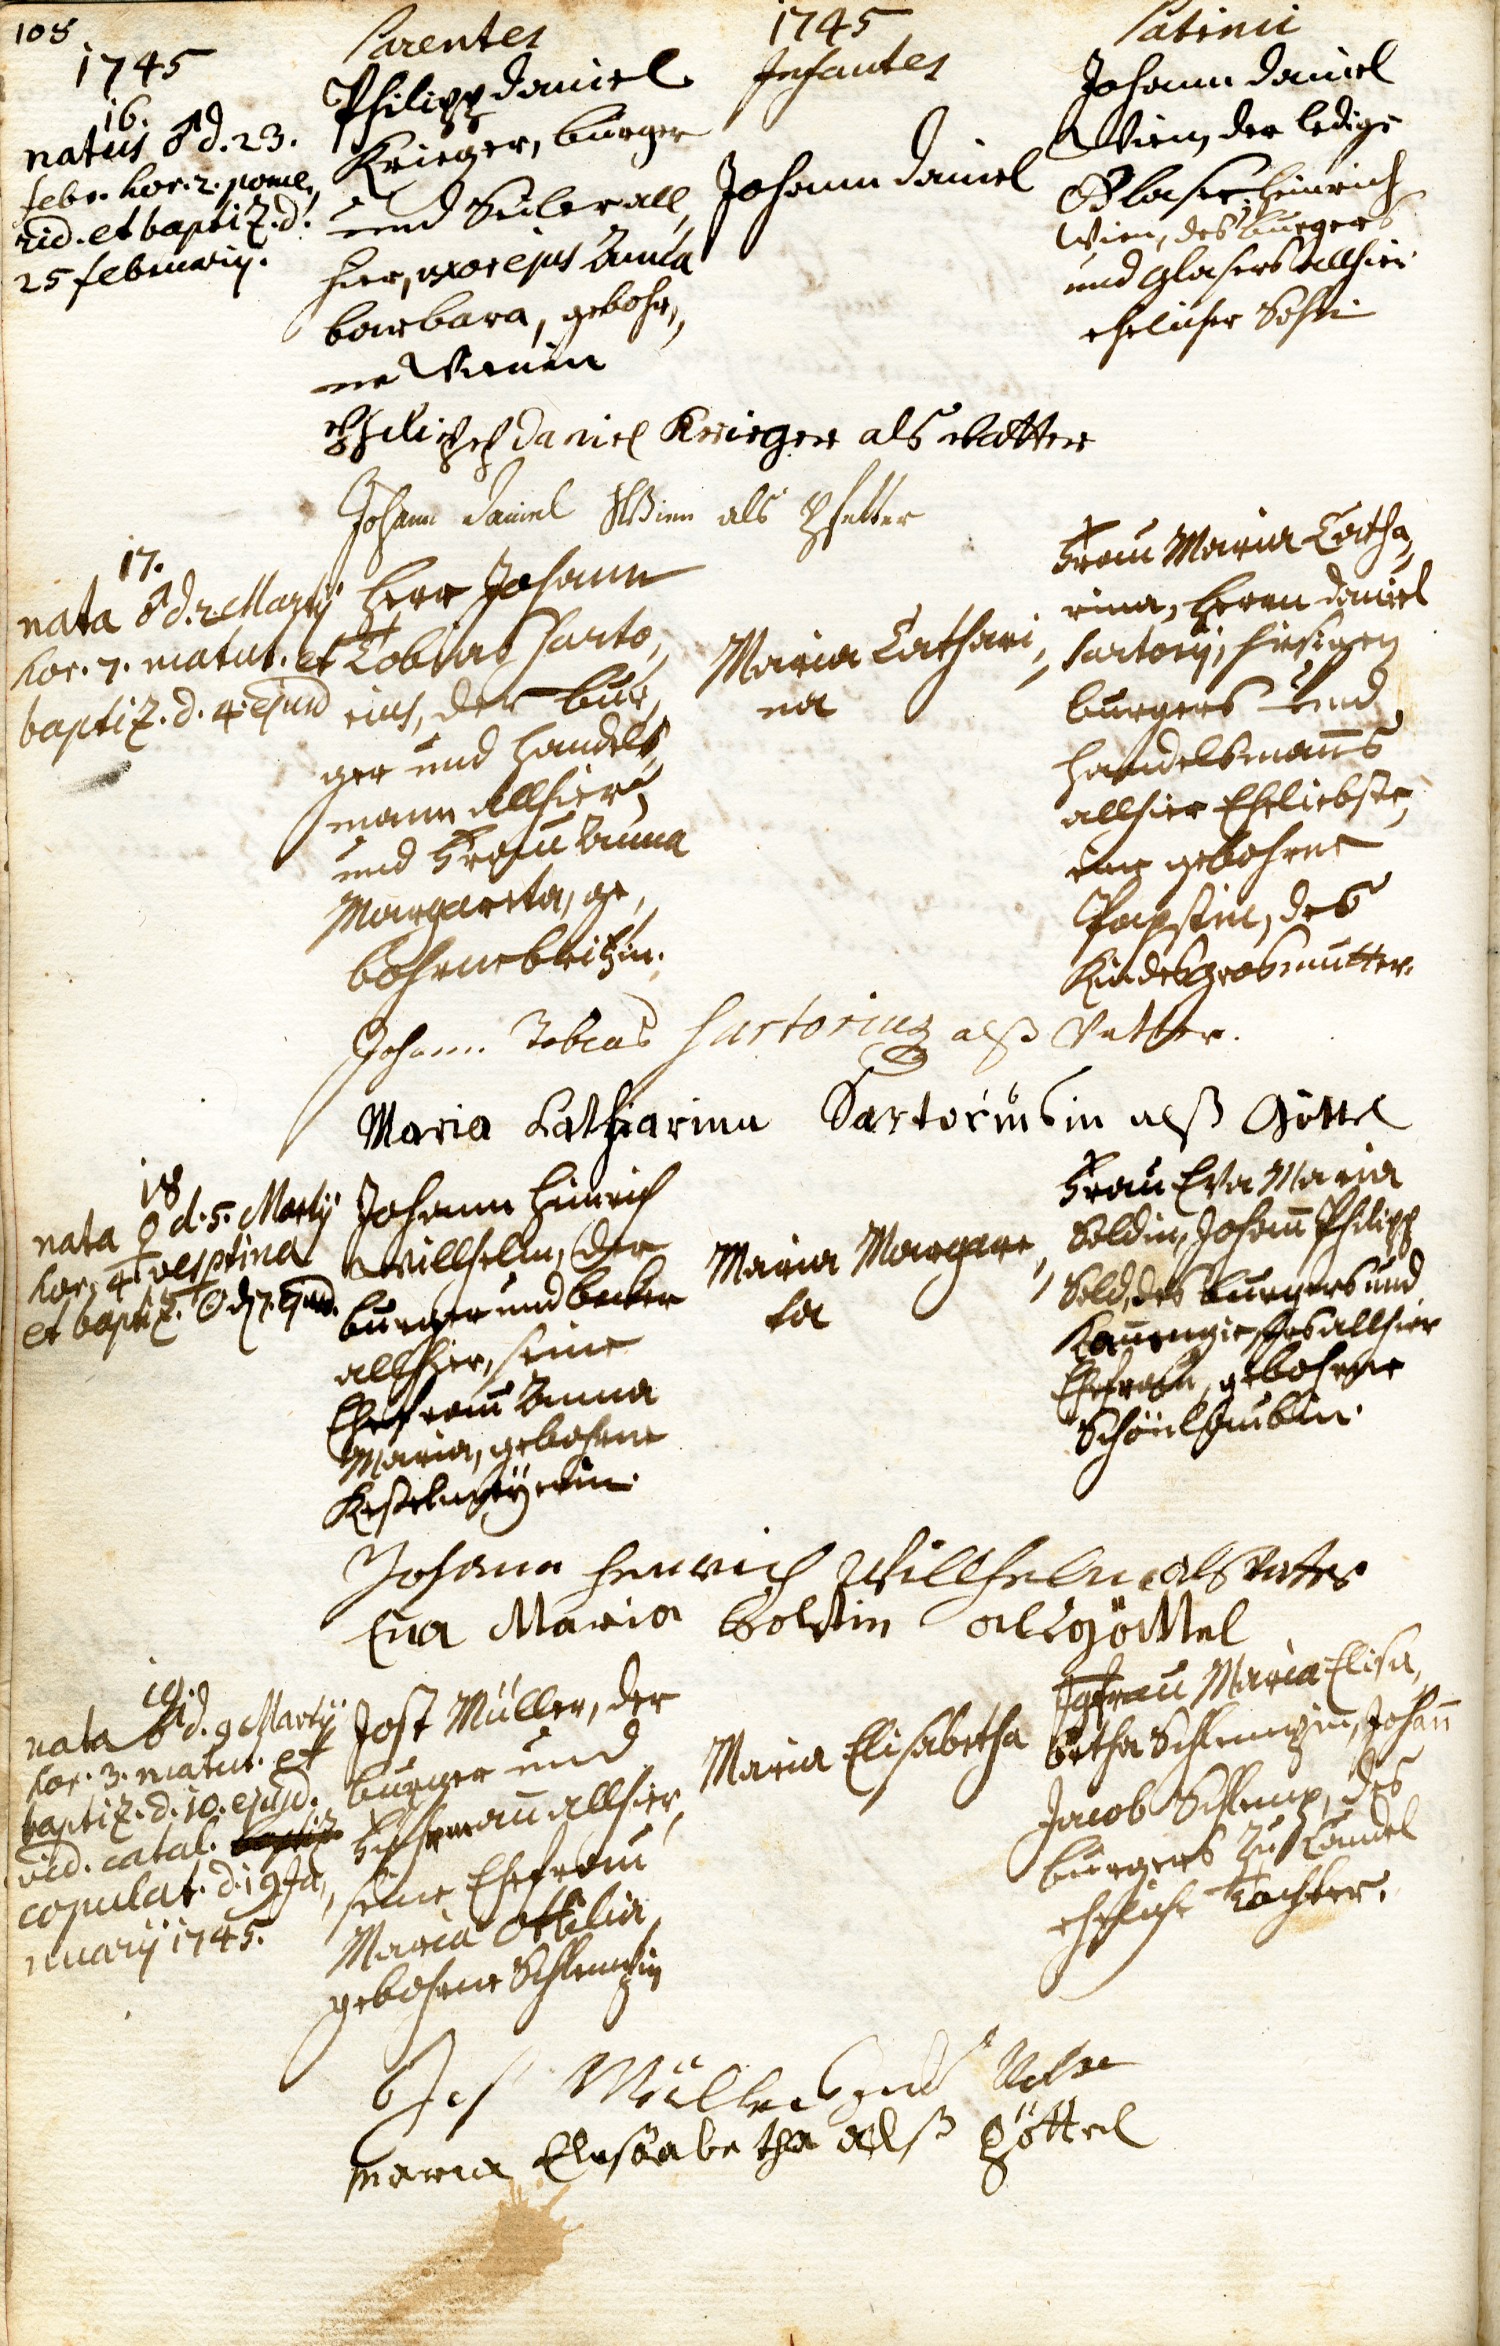 108
1745
Parentes
1745
Infantes
Patrini
16.
natus ♂ d. 23.
febr. hor. 2. pome,,
rid. et baptiz. d.
25 februarij.
Philipp Daniel
Krieger, burger
und Seiler all,,
hier, uxor ejus Anna
barbara, gebohr,,
ne Wienin
Johann Daniel
Johann Daniel
Wien, der ledige
Glaser, Heinrich
Wien, des burgers
und glasers allhier
ehelicher Sohn
Philipp Daniel Krieger als vatter
Johann Daniel Wien als Pfetter
17.
nata ♂ d. 2. Martij
hor. 7. matut. et
baptiz. d. 4. ejusd
Herr Johann
Tobias Sarto,,
rius, der bur,,
ger und handels,,
mann allhier,
und Frau Anna
Margareta, ge,,
bohrne
Maria Cathari,,
na
Frau Maria Catha,,
rina, Herrn Daniel
Sartorij, hiesigen
burgers und
handelsmanns
allhier Eheliebste,
eine gebohrne
Papstin, des
Kindes grosmutter.
Johann Tobias Sartorius alß Vatter.
Maria Catharina Sartoriusin alß Göttel
18
nata ♀ d. 5. Martij
hor. 4 vesptina
et baptiz. ☉ d. 7. ejusd.
Johann Heinrich
Willhelm, der
burger und becker
allhier, seine
Ehefrau Anna
Maria, gebohrne
Keßelmeyerin.
Maria Margare,,
ta
Frau Eva Maria
Boldin, Johann Philipp
Bold, des burgers und
Kannengießers allhier
Ehefrau, gebohrne
Schönlaubin.
Johann Henrich Willhelm als vatter
Eva Maria Boldin als göttel
19.
nata ♂ d. 9 Martij
hor. 3. matut. et
baptiz. d. 10. ejusd.
vid. catal.
copulat. d. 19 Ja,,
nuarij 1745.
Jost Müller, der
burger und
allhier,
seine Ehefrau
Maria Ottilia,
gebohrne Schlempin
Maria Elisabetha
Jgfrau Maria Elisa,,
betha Schlempin, Johann
Jacob Schlemp, des
burgers zu Candel
eheliche tochter.
Müller
maria Elisabetha alß göttel